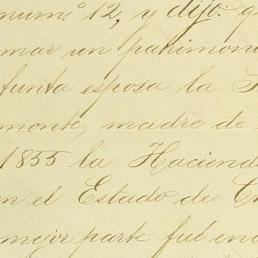 num.º 12, y dijo: q
mar un patrimoni
funta esposa la S
monte, madre de
1855 la Haciend
n el Estado de C
mejor parte fué en